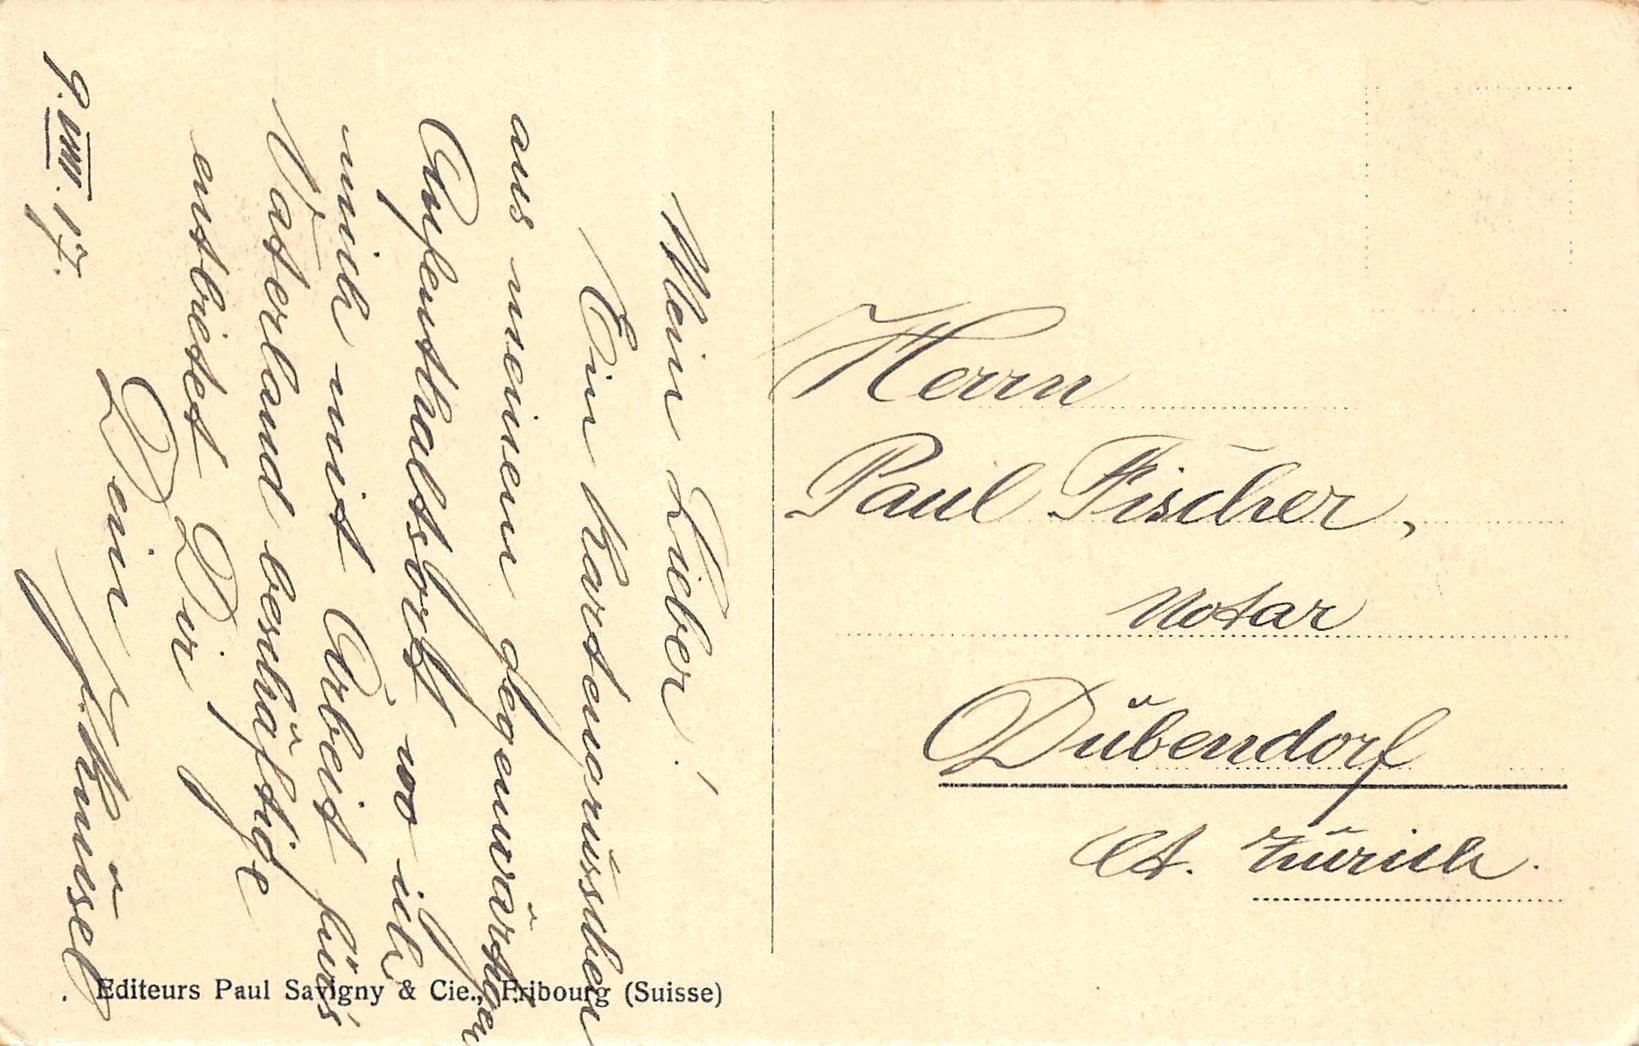 Mein Lieber!
Ein Kartengrüsschen
aus meinem gegenwärtigen
Aufenthaltsort, wo ich
mich mit Arbeit für's
Vaterland beschäftige
entbietet Dir
Dein J. Knüsel.
9. VIII. 17.
Herrn
Paul Fischer,
Notar
Dübendorf
Ct. Zürich.
Editeurs Paul Savigny & Cie., Fribourg (Suisse)